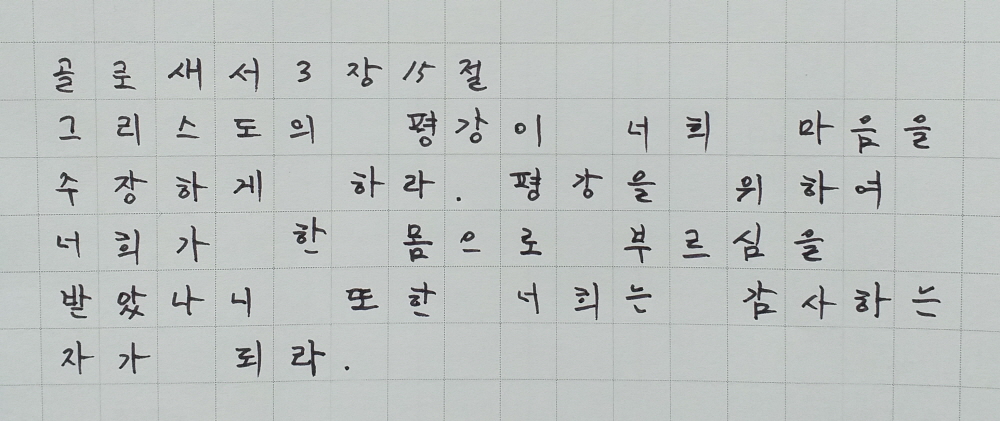 골로새서 3장 15절
그리스도의 평강이 너희 마음을
주장하게 하라. 평강을 위하여
너희가 한 몸으로 부르심을
받았나니 또한 너희는 감사하는
자가 되라.